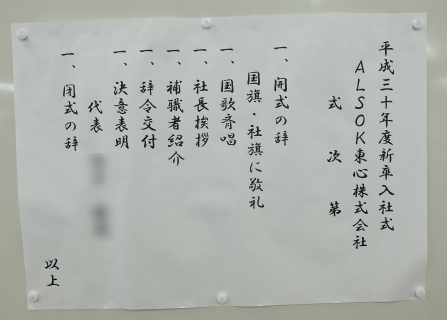 平成三十年度新卒入社式
ALSOK東心株式会社
式次第
一、開式の辞
国旗・社旗に敬礼
一、国歌斉唱
一、社長挨拶
一、補職者紹介
一、辞令交付
一、決意表明
代表
一、閉式の辞
以上